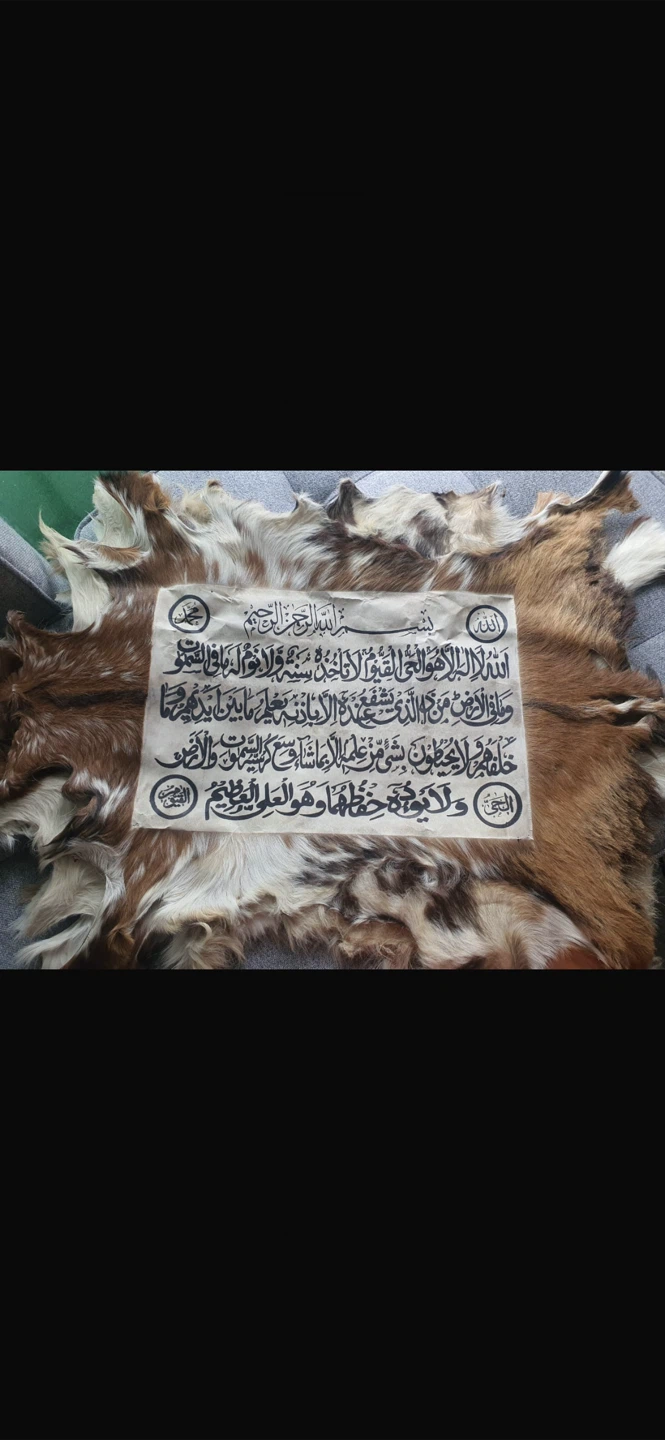 الله
بسم الله الرحمن الرحيم
محمد
الله لا اله الا هو الحي القيوم لا تاخذه سنة ولا نوم له ما في السموت
وما في الارض من ذا الذي يشفع عنده الا باذنه يعلم ما بين ايديهم وما
خلفهم ولا يحيطون بشيء من علمه الا بما شاء وسع كرسيه السموت والارض
الحي
ولا يوده حفظهما وهو العلي العظيم
القيوم